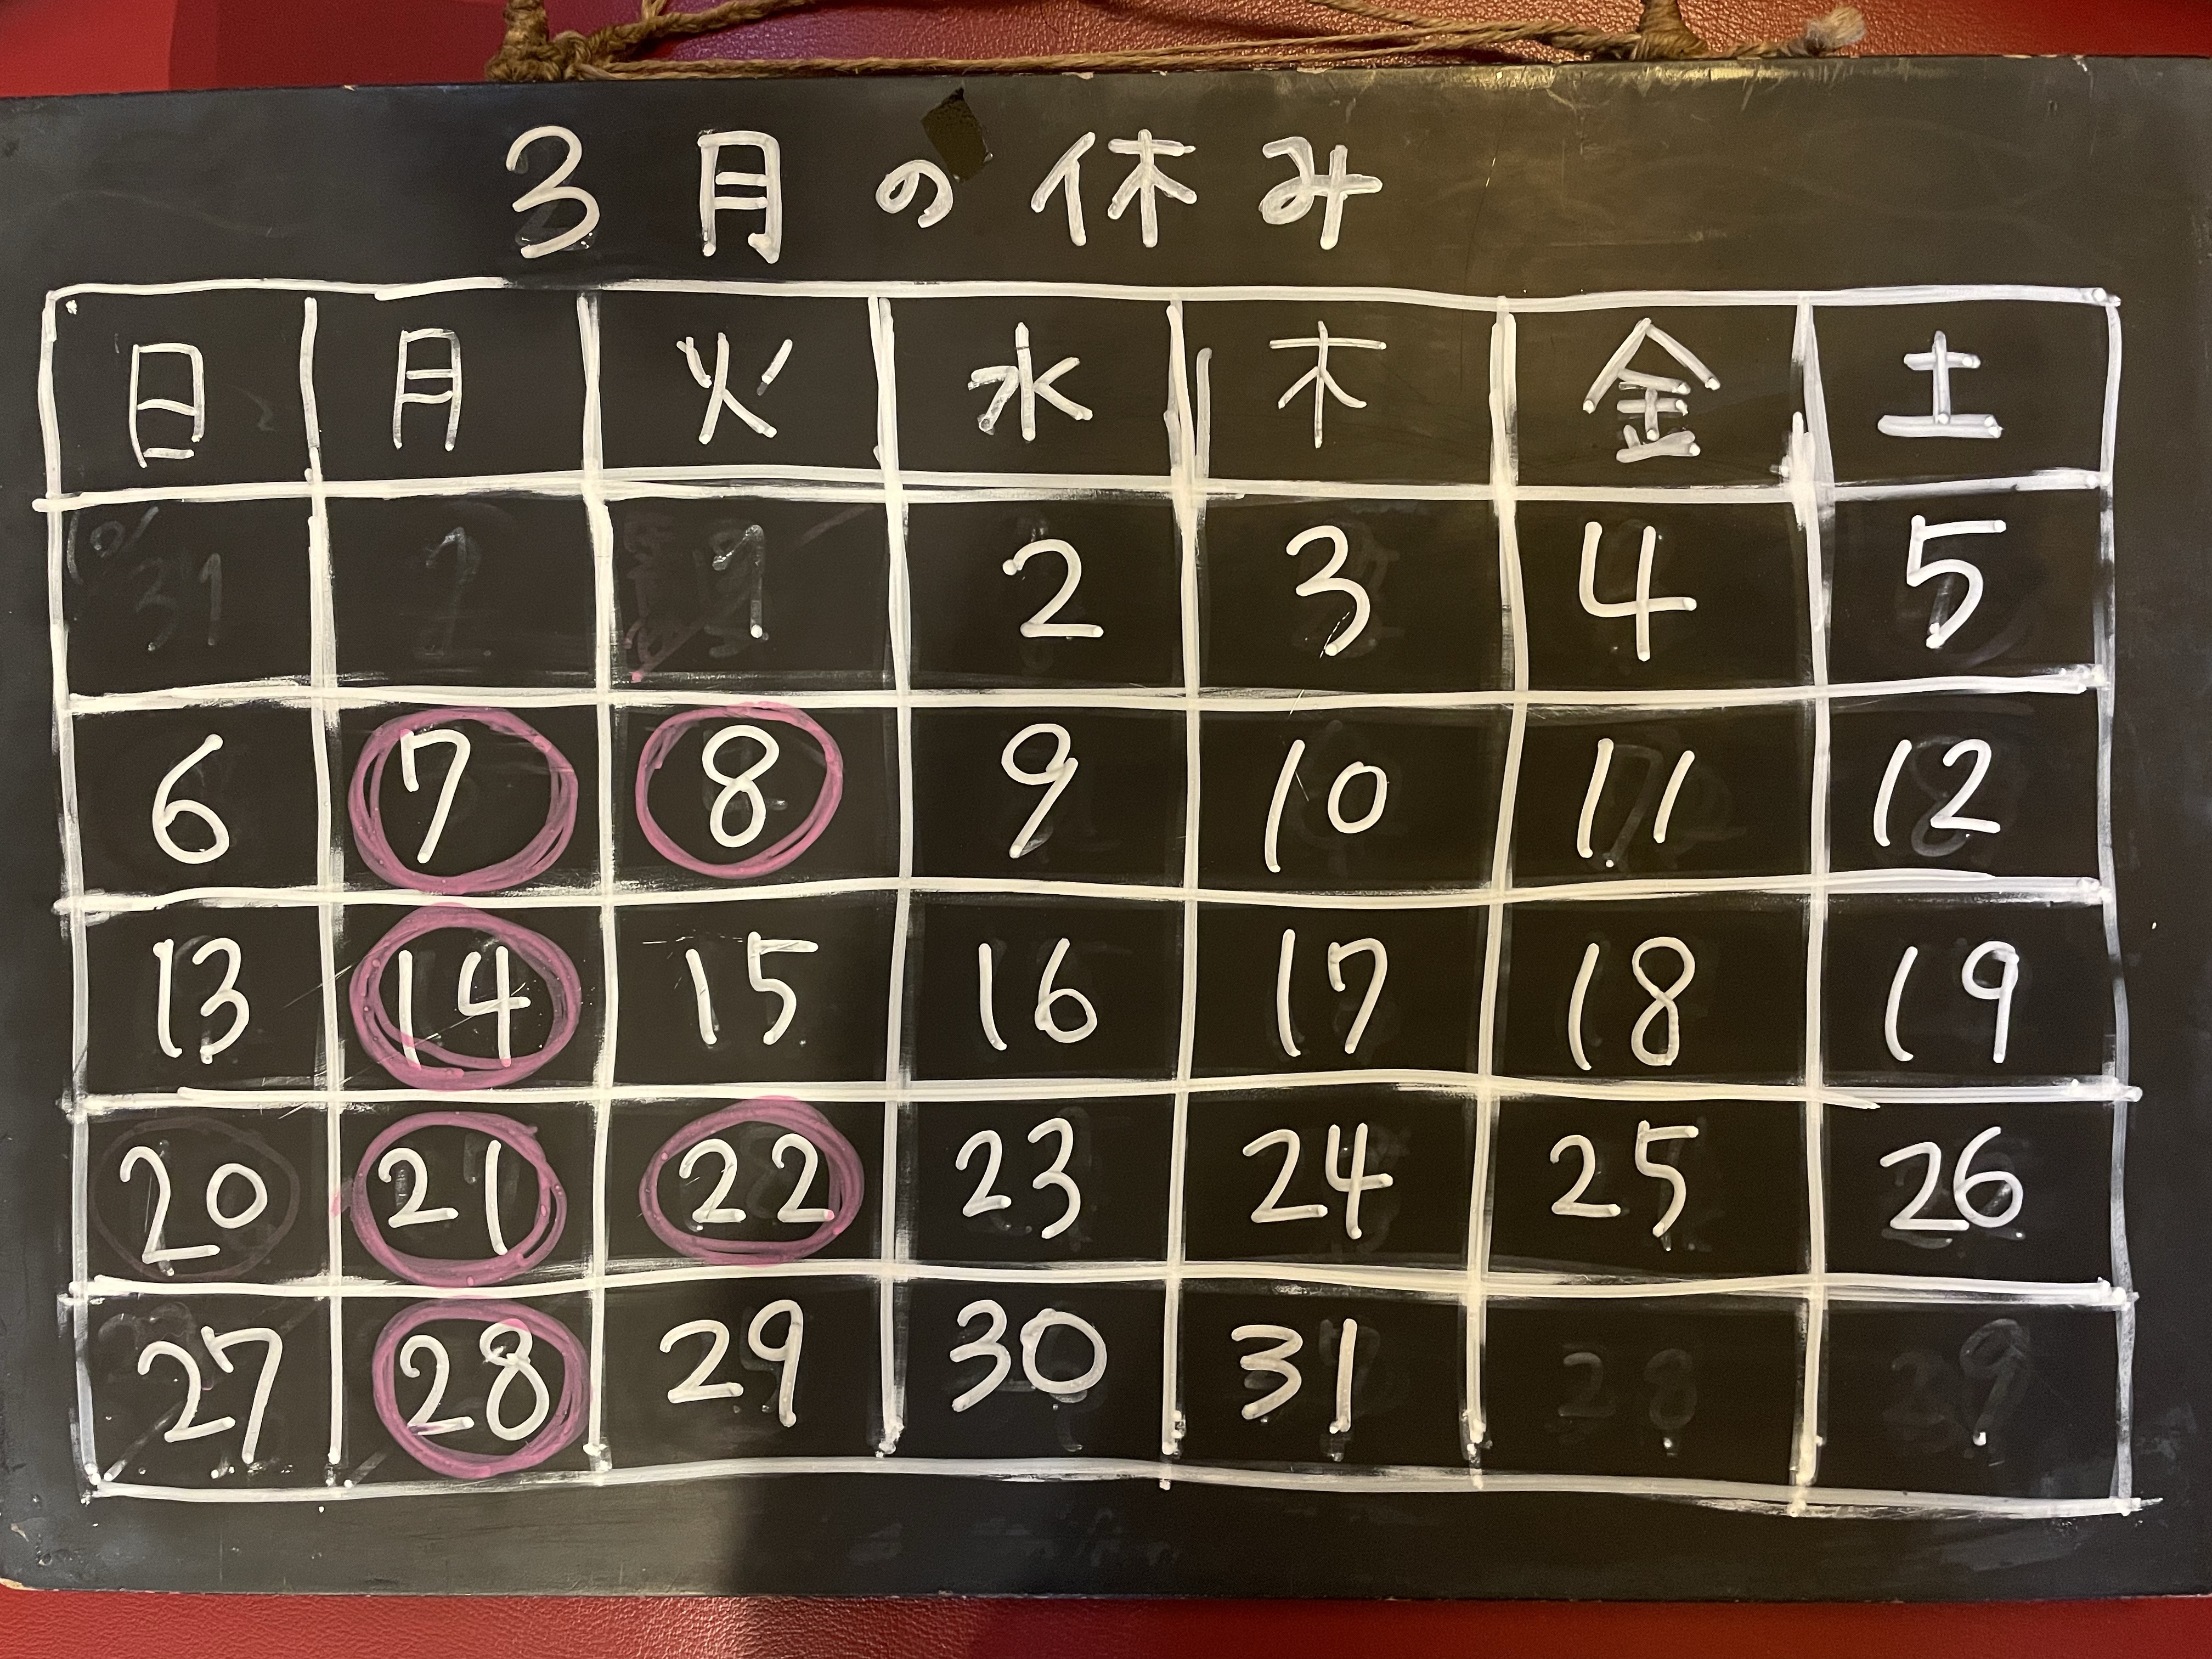 3月の休み
日 月 火 水 木 金 土
1 2 3 4 5
6 7 8 9 10 11 12
13 14 15 16 17 18 19
20 21 22 23 24 25 26
27 28 29 30 31